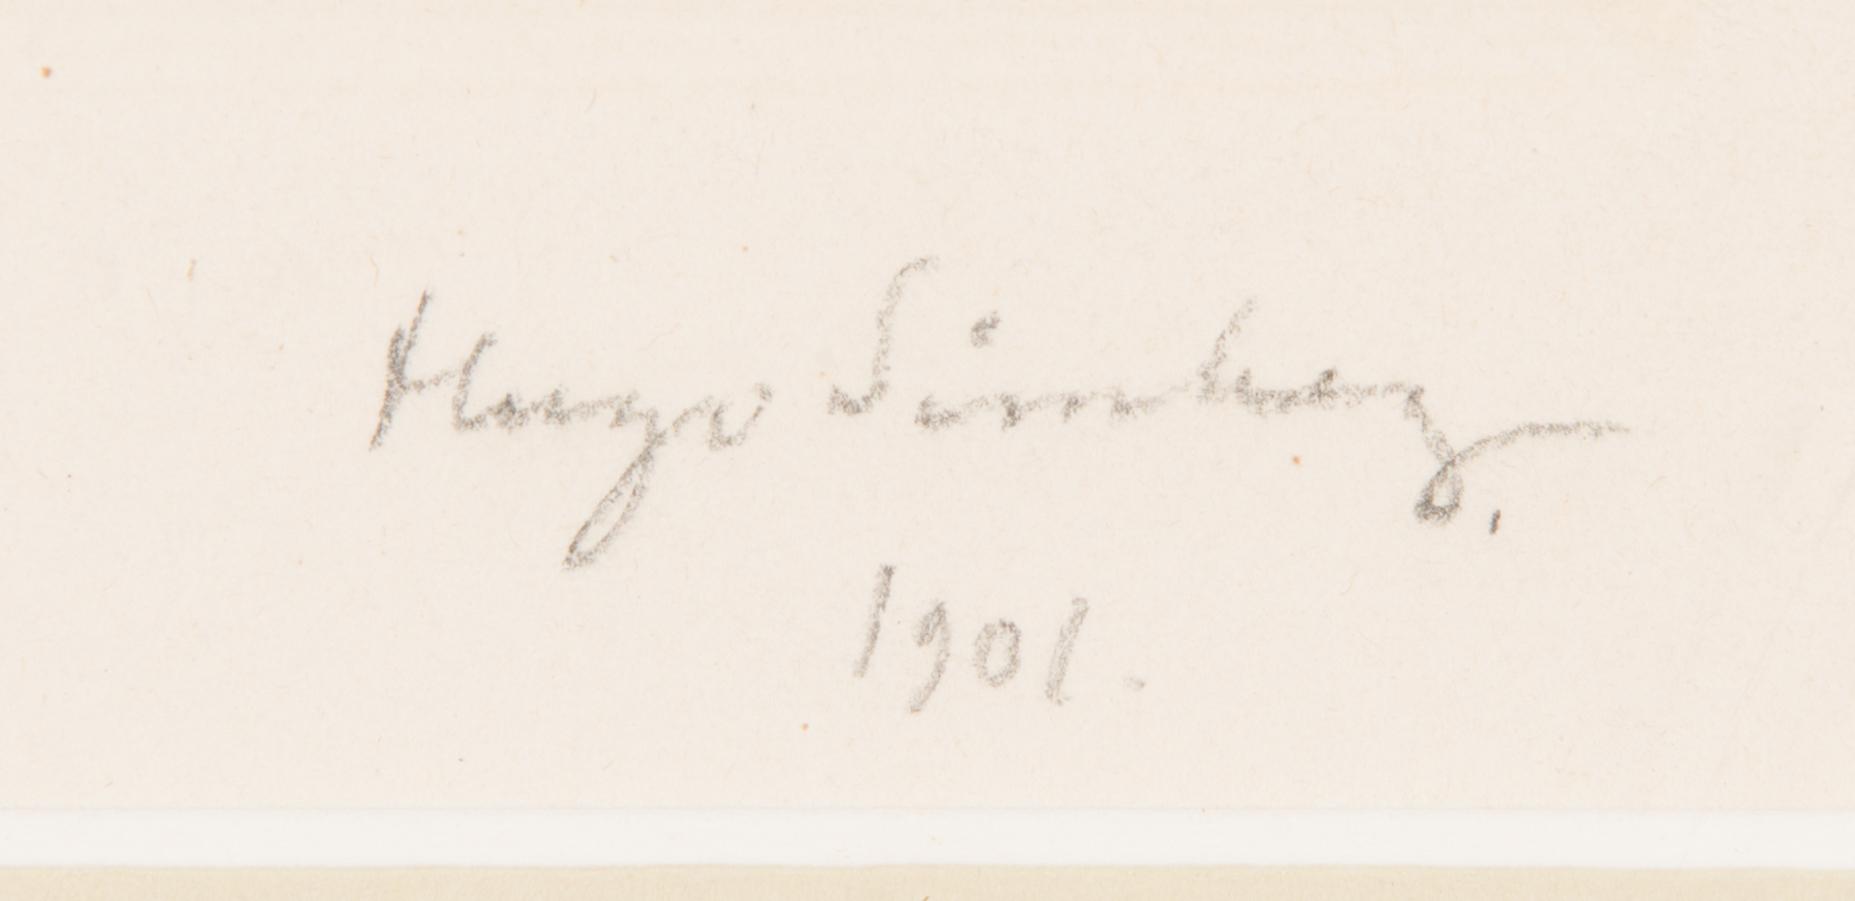 Hugo Simberg.
1901.